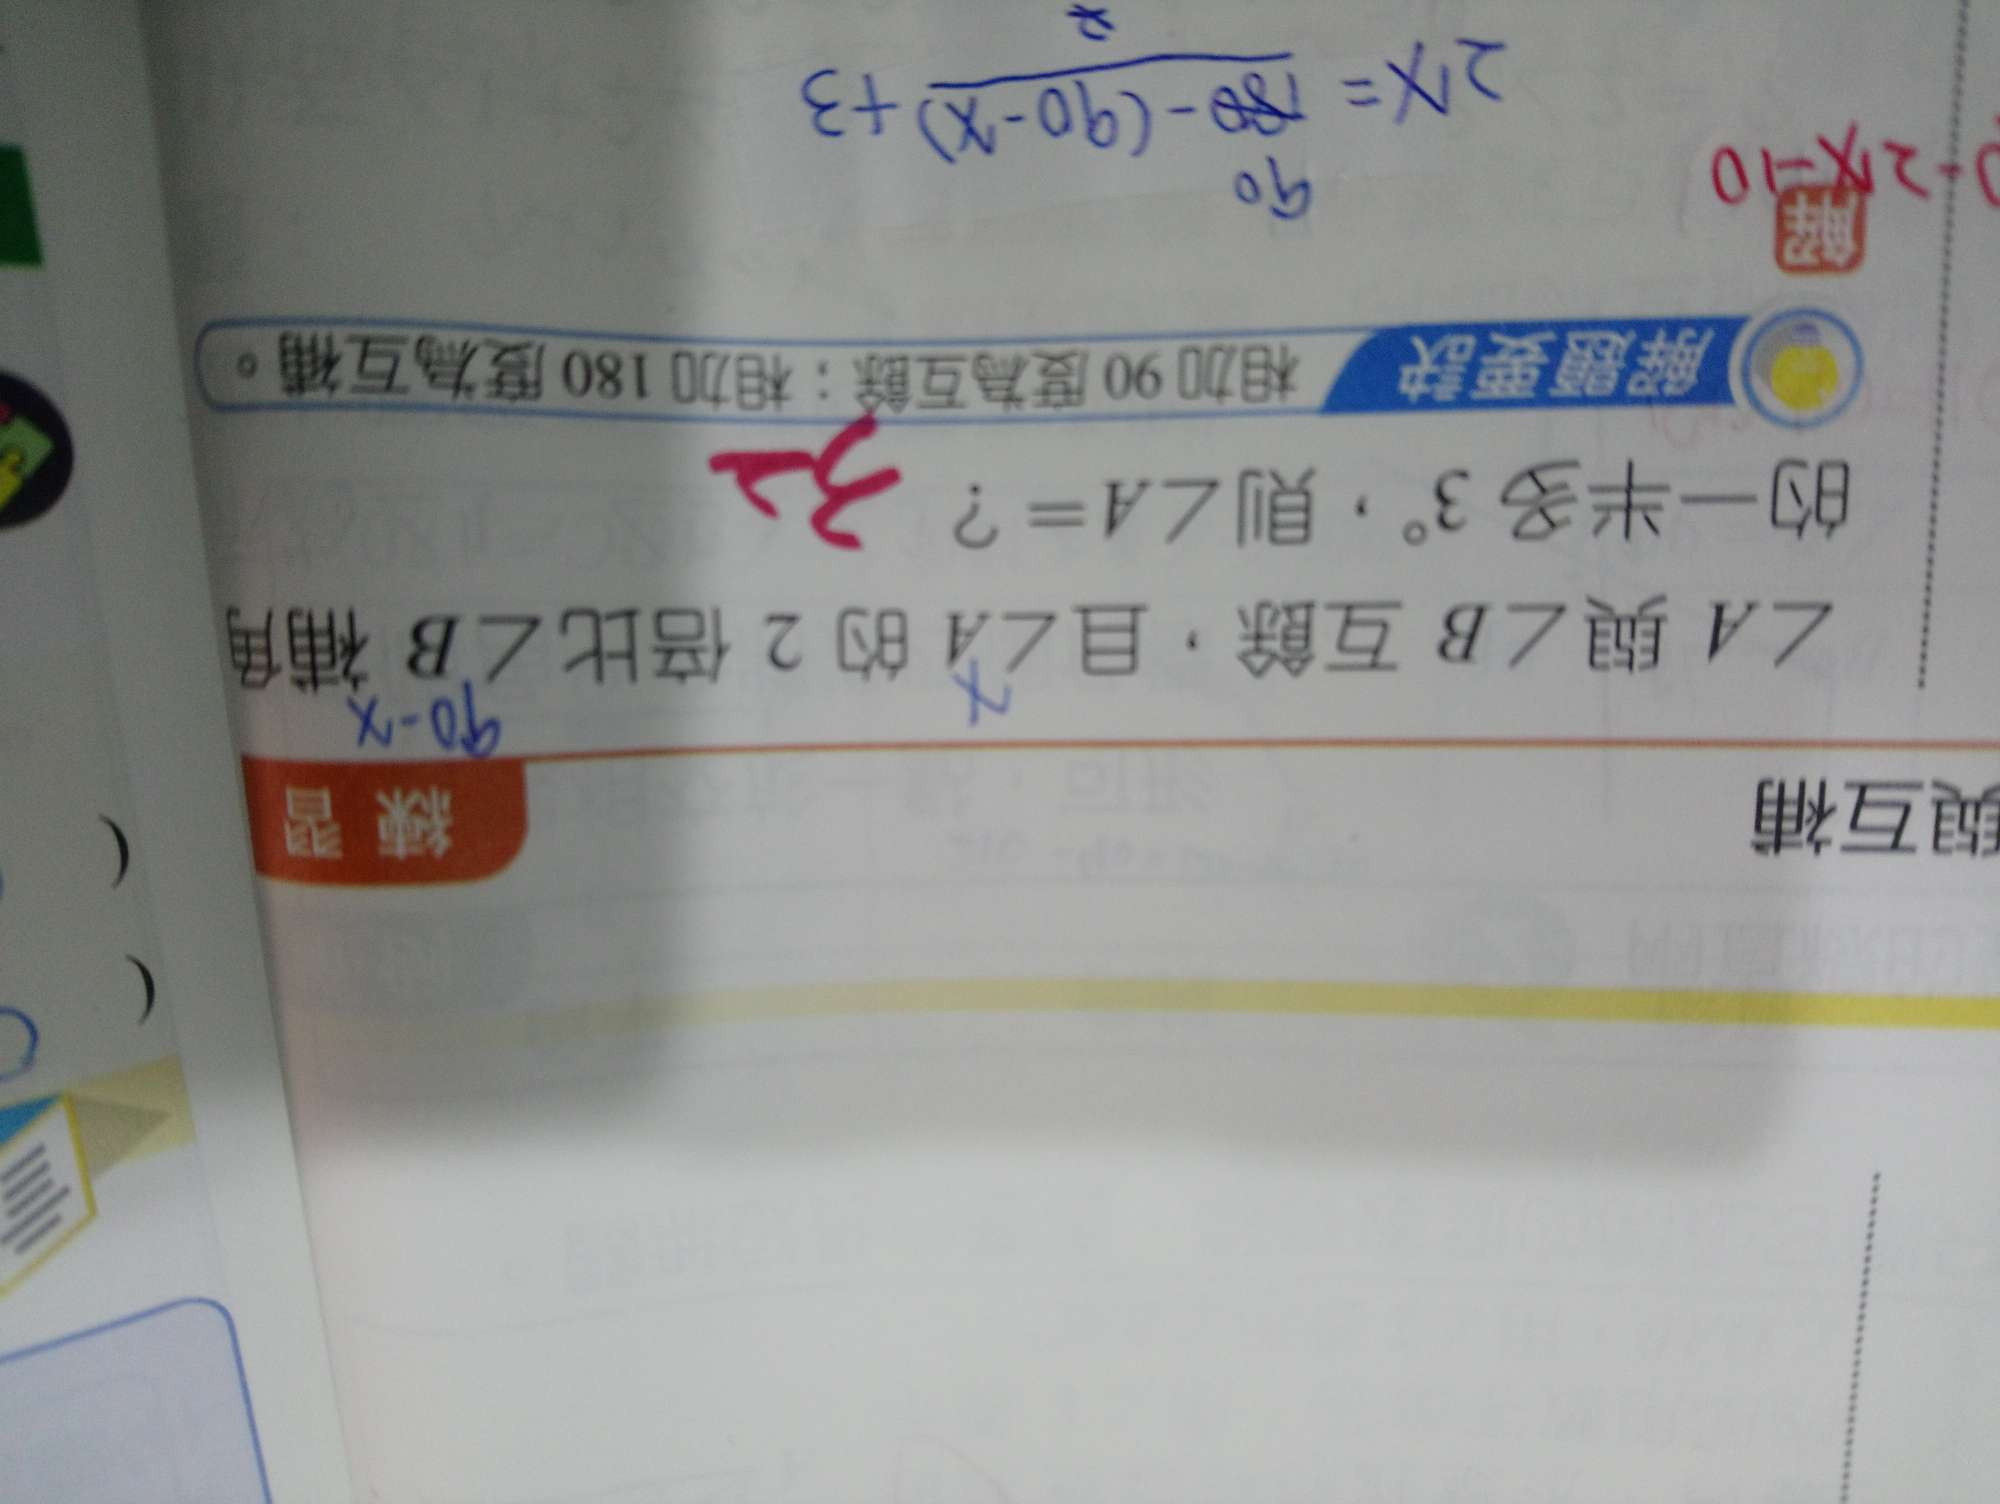 與互補
練習
x
90-x
∠A 與∠B 互餘，且∠A 的 2 倍比∠B 補角
的一半多 3°，則∠A＝？
32
解題要訣 相加 90 度為互餘；相加 180 度為互補。
解
-2x-10
90
2x = 180-(90-x) +3
2
(
(